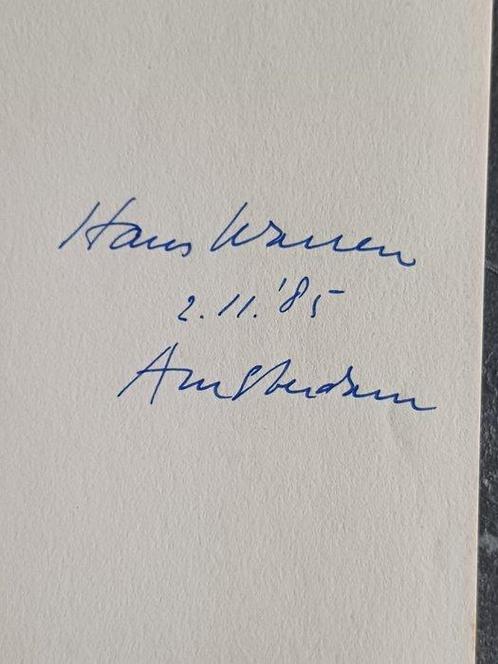 Hans Warren
2.11.'85
Amsterdam